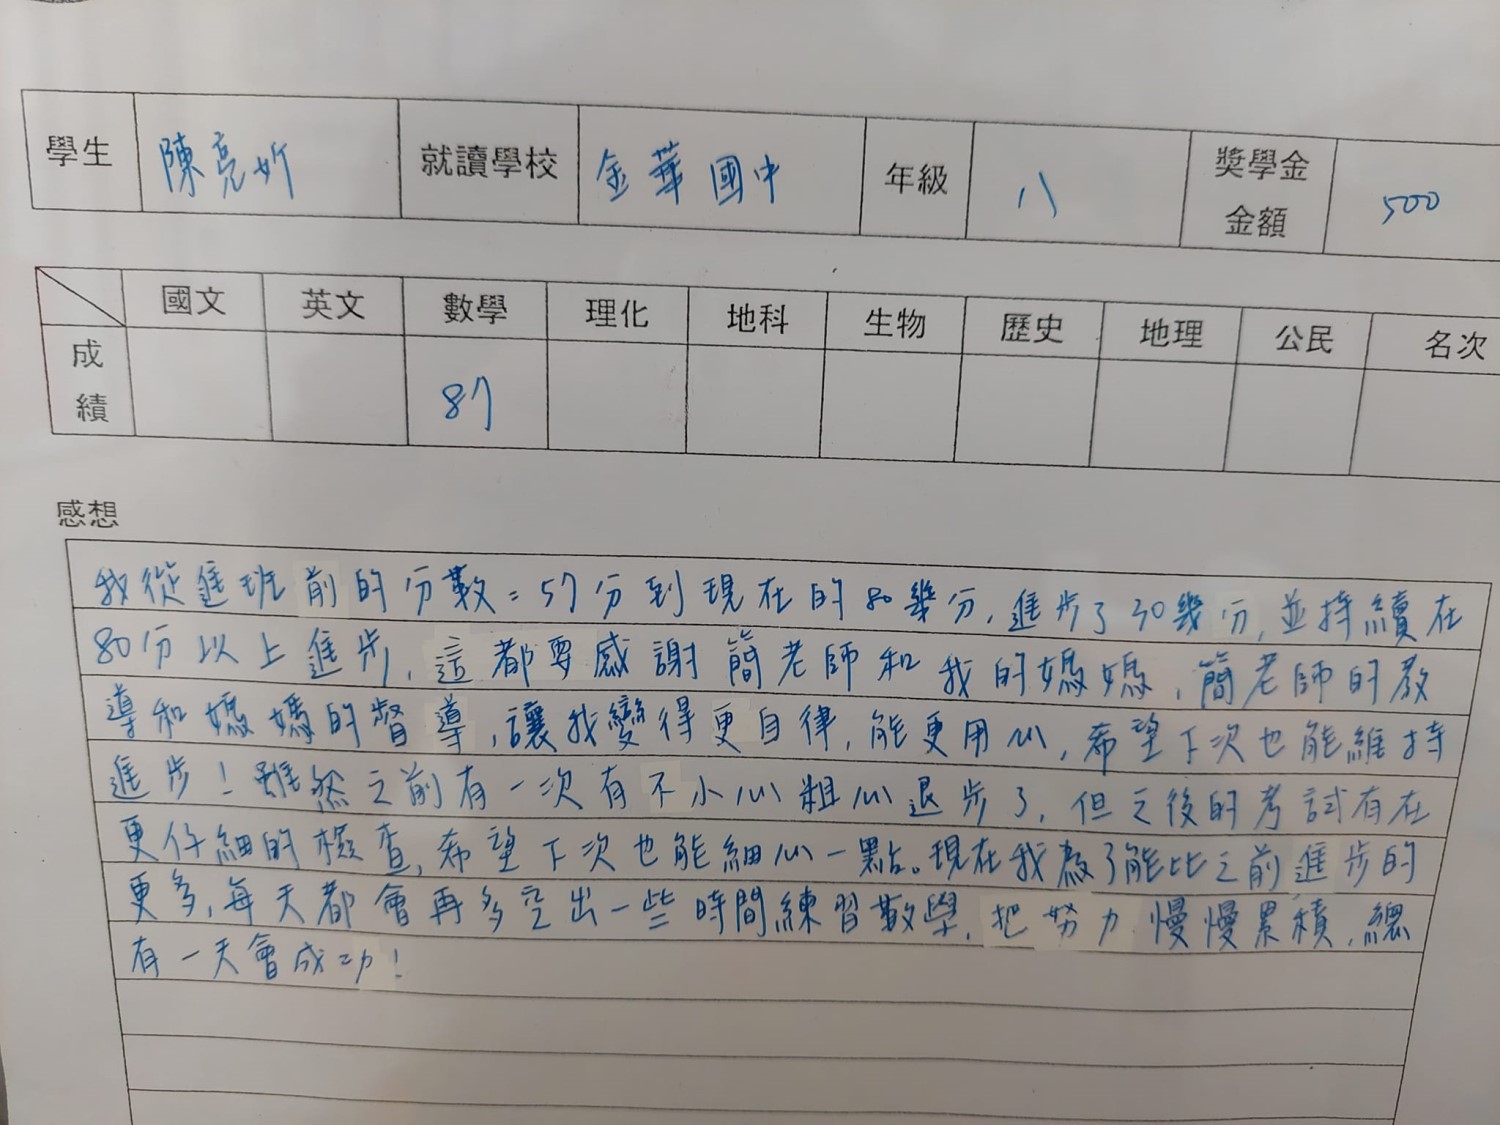 學生 陳亮妡 就讀學校 金華國中 年級 八 獎學金金額 500
國文 英文 數學 理化 地科 生物 歷史 地理 公民 名次
成績 87
感想
我從進班前的分數:57分到現在的80幾分,進步了30幾分,並持續在
80分以上進步,這都要感謝簡老師和我的媽媽,簡老師的教
導和媽媽的督導,讓我變得更自律,能更用心,希望下次也能維持
進步!雖然之前有一次有不小心粗心退步了,但之後的考試有在
更仔細的檢查,希望下次也能細心一點。現在我為了能比之前進步的
更多,每天都會再多空出一些時間練習數學,把努力慢慢累積,總
有一天會成功!